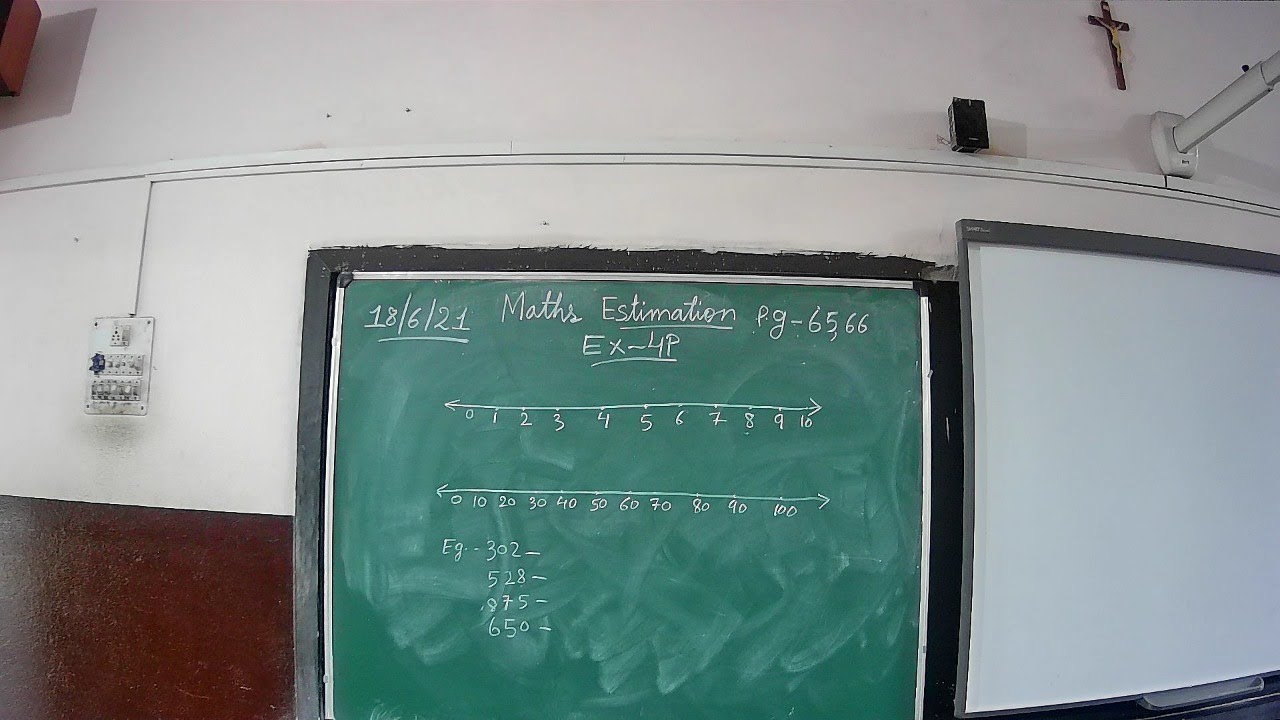 18/6/21 Maths Estimation Pg-65,66
Ex-4P
0 1 2 3 4 5 6 7 8 9 10
0 10 20 30 40 50 60 70 80 90 100
Eg.- 302-
528-
875-
650-